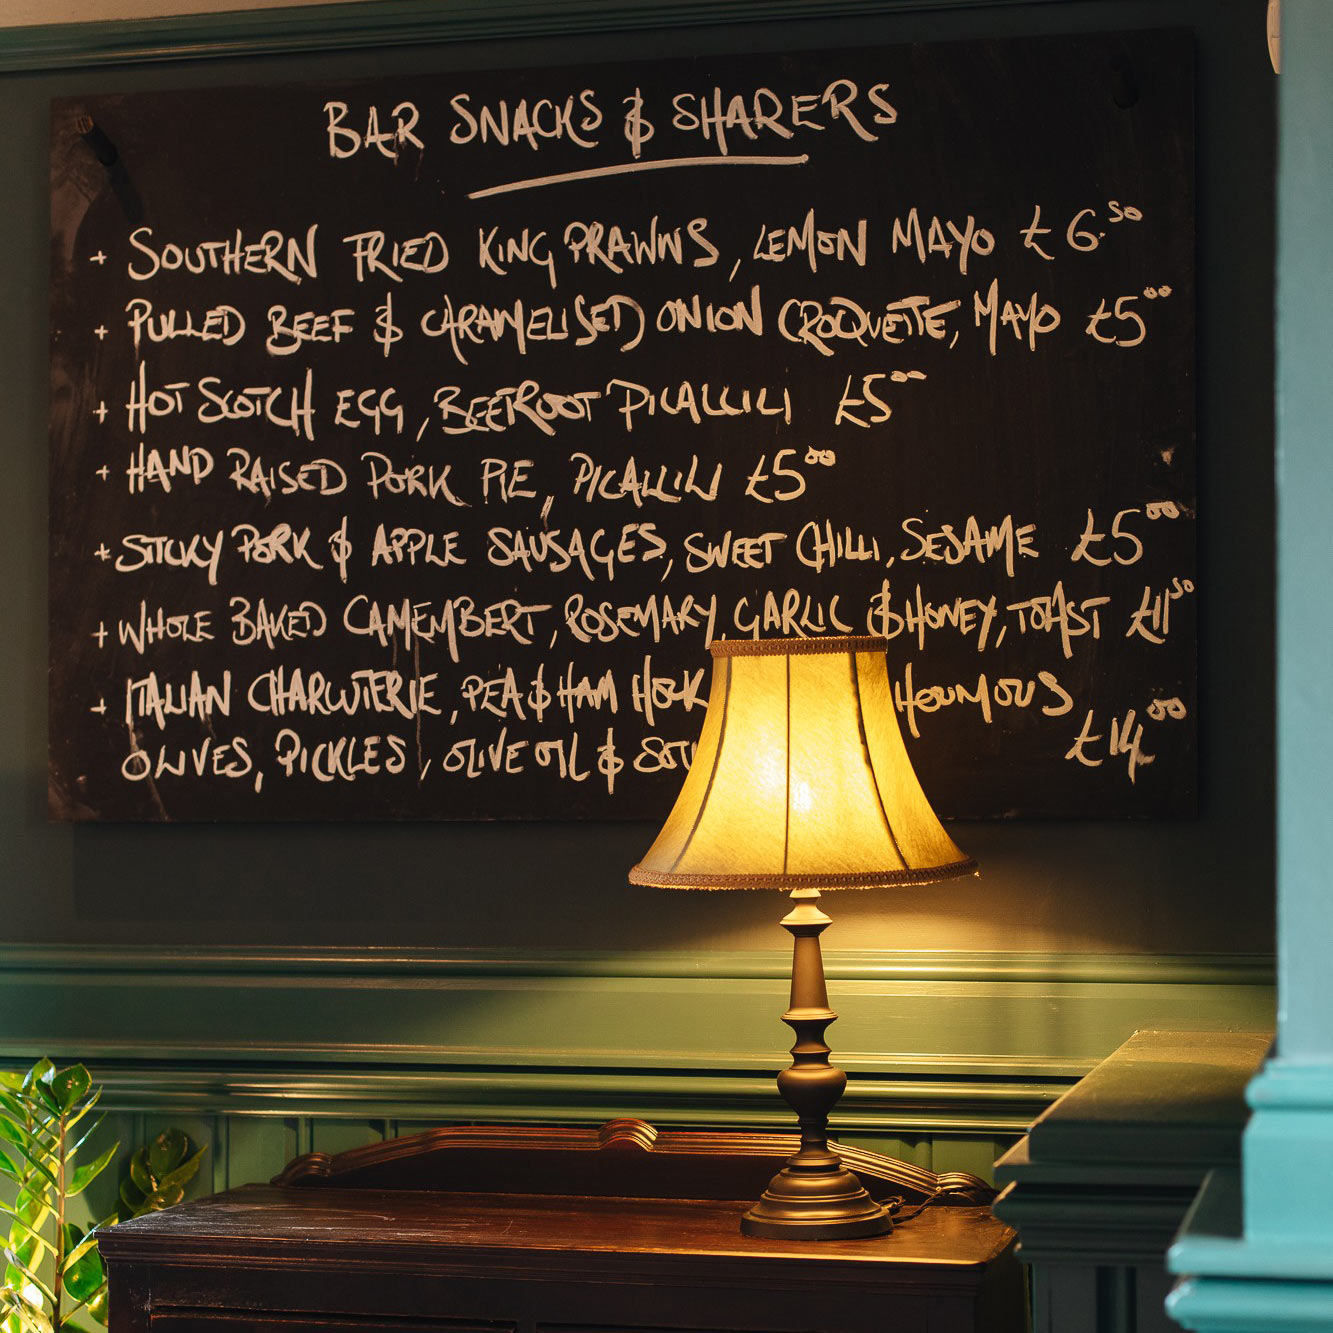 BAR SNACKS & SHARERS
+ SOUTHERN FRIED KING PRAWNS, LEMON MAYO £6.50
+ PULLED BEEF & CARAMELISED ONION CROQUETTE, MAYO £5.00
+ HOT SCOTCH EGG, BEETROOT PICALLILI £5.00
+ HAND RAISED PORK PIE, PICALLILI £5.00
+ STICKY PORK & APPLE SAUSAGES, SWEET CHILLI, SESAME £5.00
+ WHOLE BAKED CAMEMBERT, ROSEMARY, GARLIC & HONEY, TOAST £11.50
+ ITALIAN CHARCUTERIE, PEA & HAM HOCK HOUMOUS
OLIVES, PICKLES, OLIVE OIL & £14.00